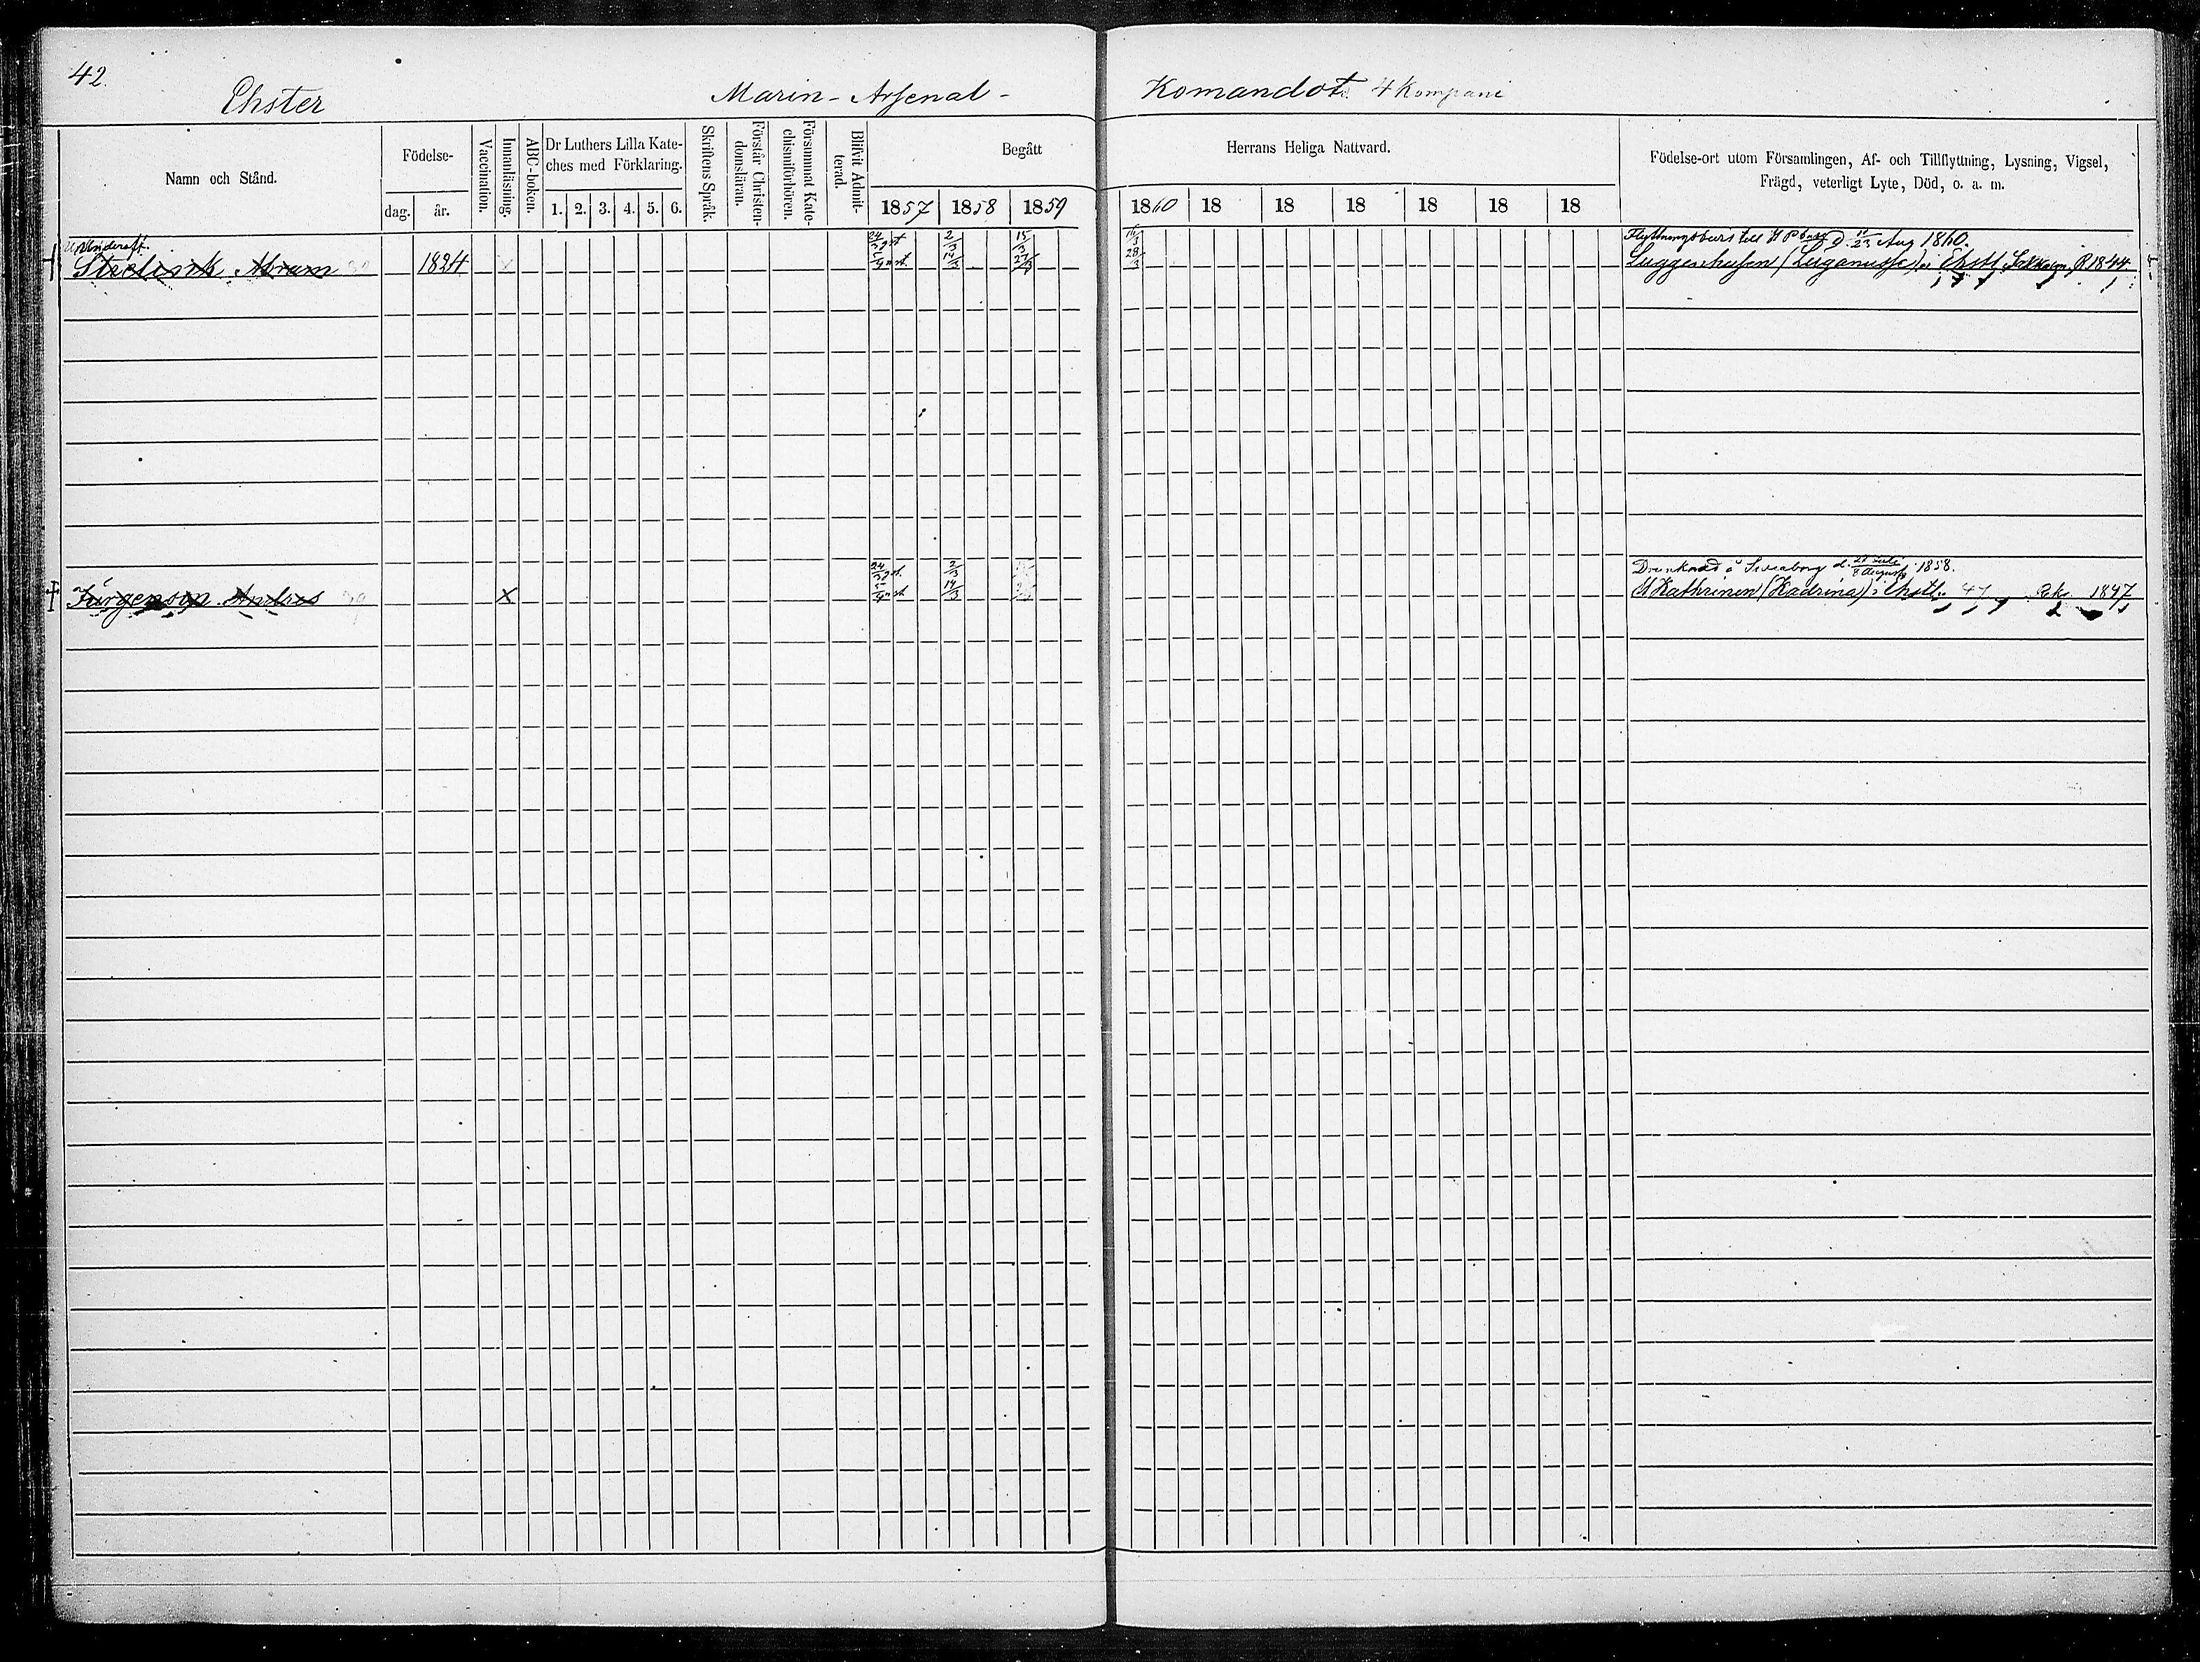 42.
Ehster Marin-Arsenal- Komandot. 4 Kompani
Namn och Stånd.
Födelse-
dag. år.
Vaccination.
Innanläsning.
ABC-boken.
Dr Luthers Lilla Kate-
ches med Förklaring.
1. 2. 3. 4. 5. 6.
Skriftens Språk.
Förstår Christen-
domsläran.
Försummat Kate-
chismiförhören.
Blifvit Admit-
terad.
Begått Herrans Heliga Nattvard.
1857 1858 1859 1860 18 18 18 18 18 18
Födelse-ort utom Församlingen, Af- och Tillflyttning, Lysning, Vigsel,
Frägd, veterligt Lyte, Död, o. a. m.
Underoff. 24/3 2/3 15/3 Flyttningsbevis till St P 11/23 Aug 1860.
Abram 1824 14/3 27/3 28/3 Luggenhusen (Luganusse) i Ehstl. R 1844.
24/3 2/3 Drunknad å Sveaborg d. 1858.
Jürgenson Andres X 14/3 St Kathrinen (Kadrina) i Ehstl. 47 Rek. 1847